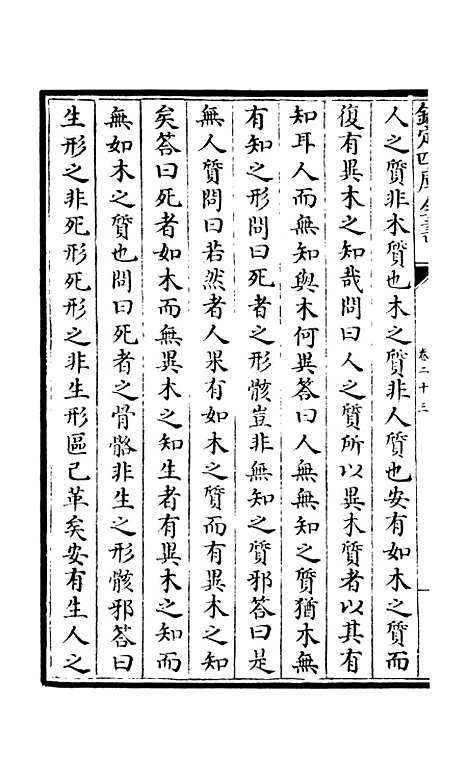 欽定四庫全書
卷二十三
人之質非木質也木之質非人質也安有如木之質而
復有異木之知哉問曰人之質所以異木質者以其有
知耳人而無知與木何異荅曰人無無知之質猶木無
有知之形問曰死者之形骸豈非無知之質邪荅曰是
無人質問曰若然者人果有如木之質而有異木之知
矣荅曰死者如木而無異木之知生者有異木之知而
無如木之質也問曰死者之骨骼非生之形骸邪荅曰
生形之非死形死形之非生形區已革矣安有生人之